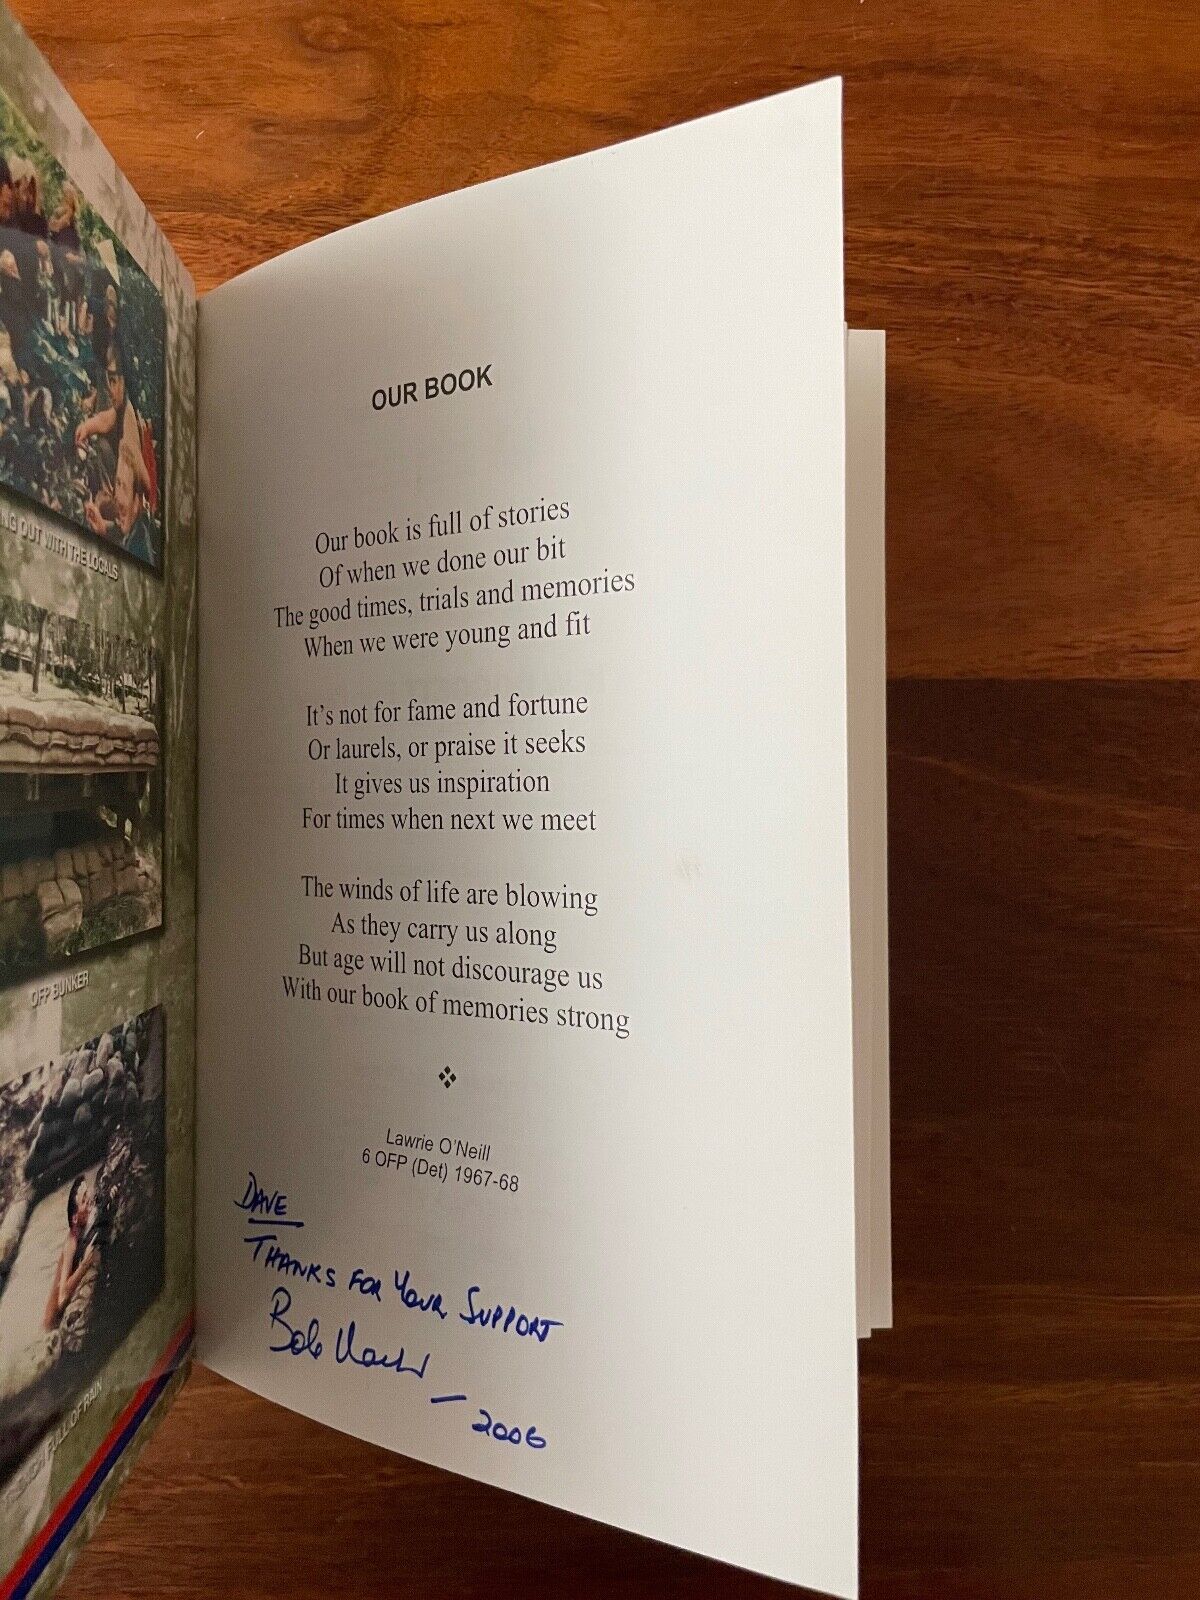 NG OUT WITH THE LOCALS
OFP BUNKER
FULL OF RAIN
OUR BOOK
Our book is full of stories
Of when we done our bit
The good times, trials and memories
When we were young and fit
It's not for fame and fortune
Or laurels, or praise it seeks
It gives us inspiration
For times when next we meet
The winds of life are blowing
As they carry us along
But age will not discourage us
With our book of memories strong
Lawrie O'Neill
6 OFP (Det) 1967-68
DAVE
THANKS FOR YOUR SUPPORT
Bob
– 2006